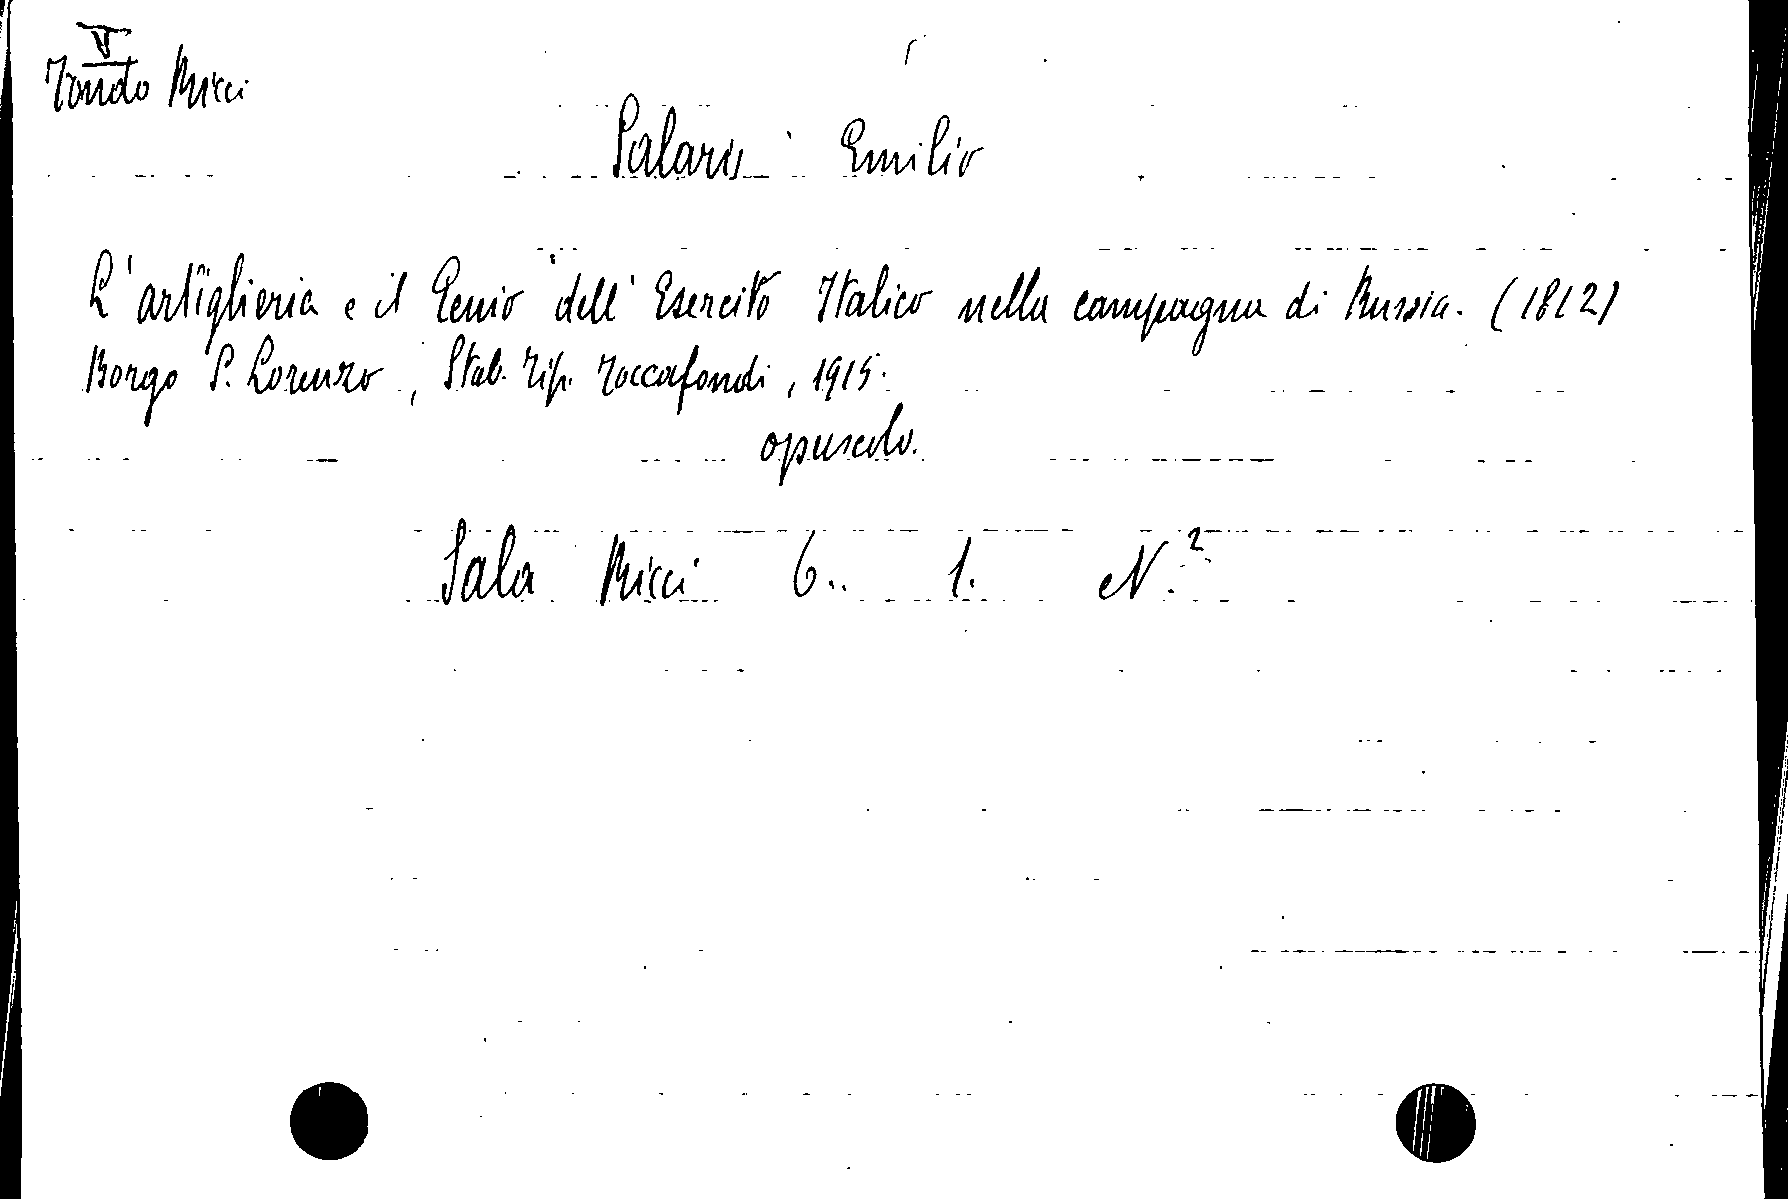 V
Fondo Ricci
Salaris Emilio
L'artiglieria e il Genio dell' Esercito Italico nella campagna di Russia. (1812)
Borgo S. Lorenzo, Stab. Tip. Toccafondi, 1915.
opuscolo.
Sala Ricci 6.. 1. N.2